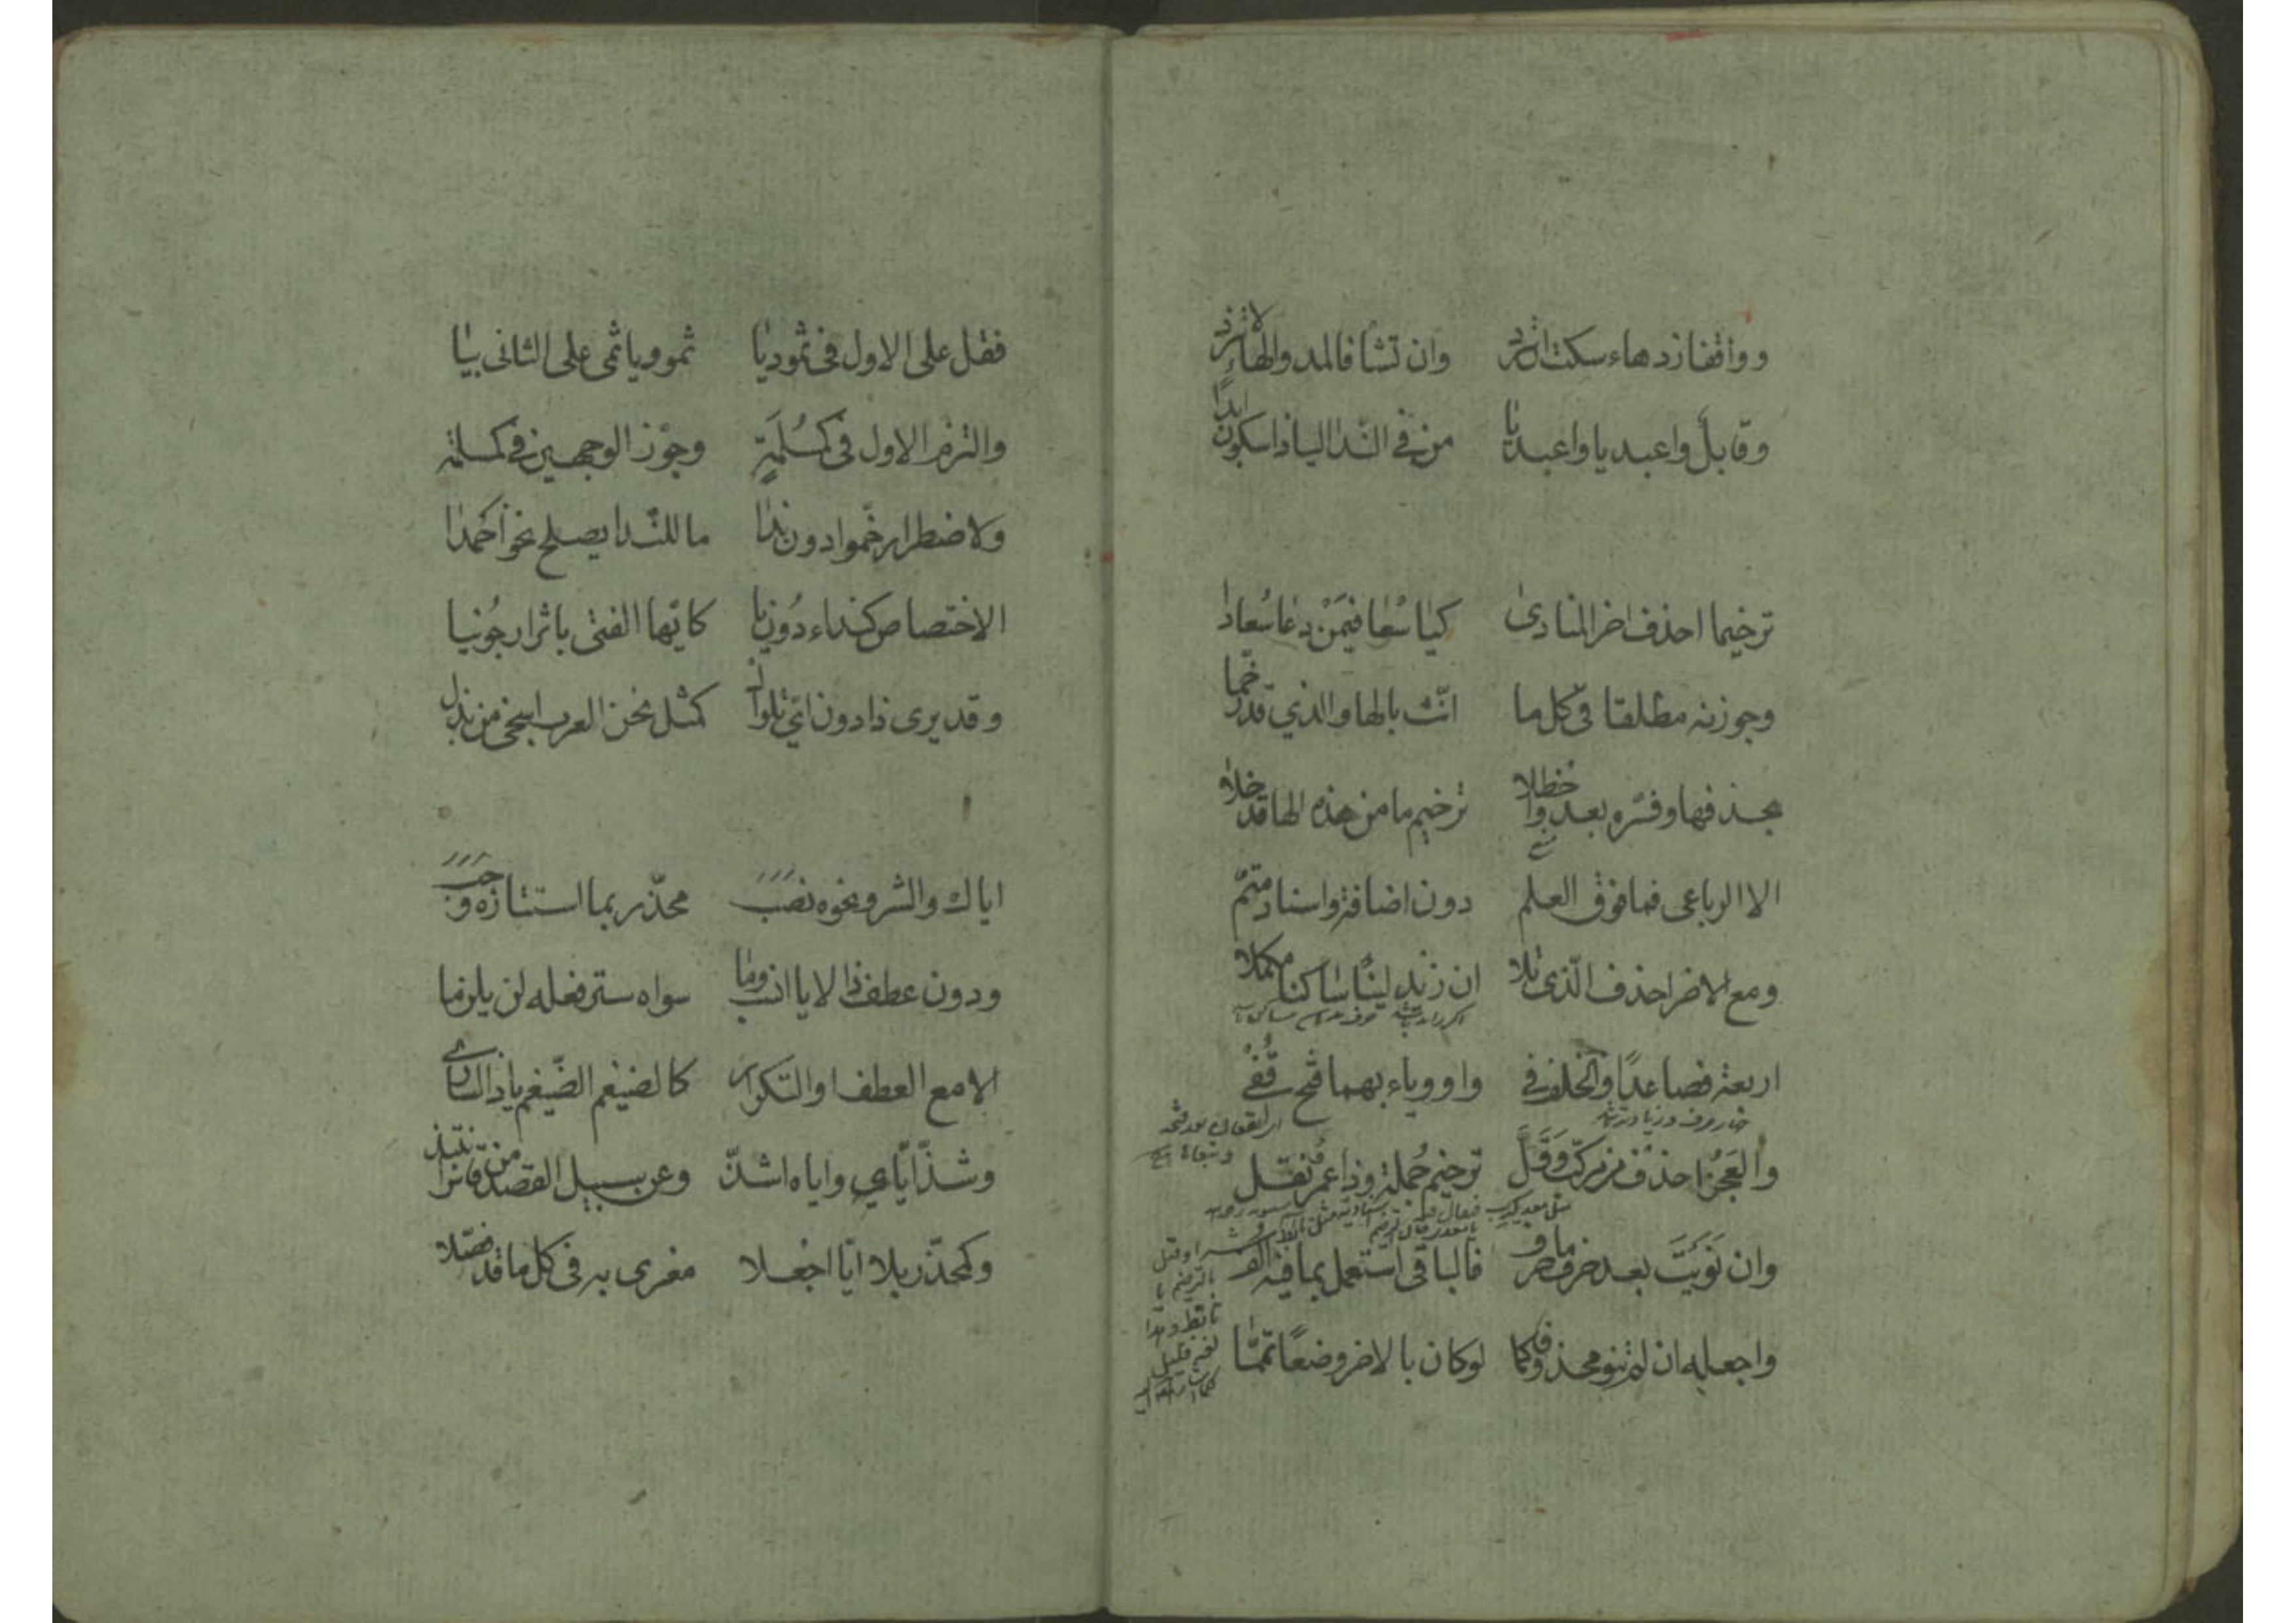 وواقفا زد هاء سكت ان ترد وان تشا فالمد والهاء لا تزد
وقابل واعبديا واعبدا من في الندا اليا ذا سكون ابدا
ترخيما احذف اخر المنادى كيا سعا فيمن دعا سعادا
وجوزنه مطلقا في كل ما انث بالها والذي قد رخما
بحذفها وفره بعد واحظلا ترخيم ما من هذه الها قد خلا
الا الرباعي فما فوق العلم دون اضافة واسناد متم
ومع الاخر احذف الذي تلا ان زيد لينا ساكنا مكملا
اربعة فصاعدا والخلف في واو وياء بهما فتح قفي
والعجز احذف من مركب وقل ترخيم جملة وذا عمرو نقل
وان نويت بعد حذف ما حذف فالباقي استعمل بما فيه الف
واجعله ان لم تنو محذوفا كما لو كان بالاخر وضعا تمما
فقل على الاول في ثمود يا ثمو ويا ثمى على الثاني بيا
والتزم الاول في كمسلمة وجوز الوجهين في كمسلمة
ولاضطرار رخموا دون ندا ما للندا يصلح نحو احمدا
الاختصاص كنداء دون يا كايها الفتى باثر ارجونيا
وقد يرى ذا دون اي تلو ال كمثل نحن العرب اسخى من بذل
اياك والشر ونحوه نصب محذر بما استتاره وجب
ودون عطف ذا لايا انسب وما سواه ستر فعله لن يلزما
الا مع العطف او التكرار كالضيغم الضيغم ياذا الساري
وشذ اياي واياه اشذ وعن سبيل القصد من قاس انتبذ
وكمحذر بلا ايا اجعلا مغرى به في كل ما قد فصلا